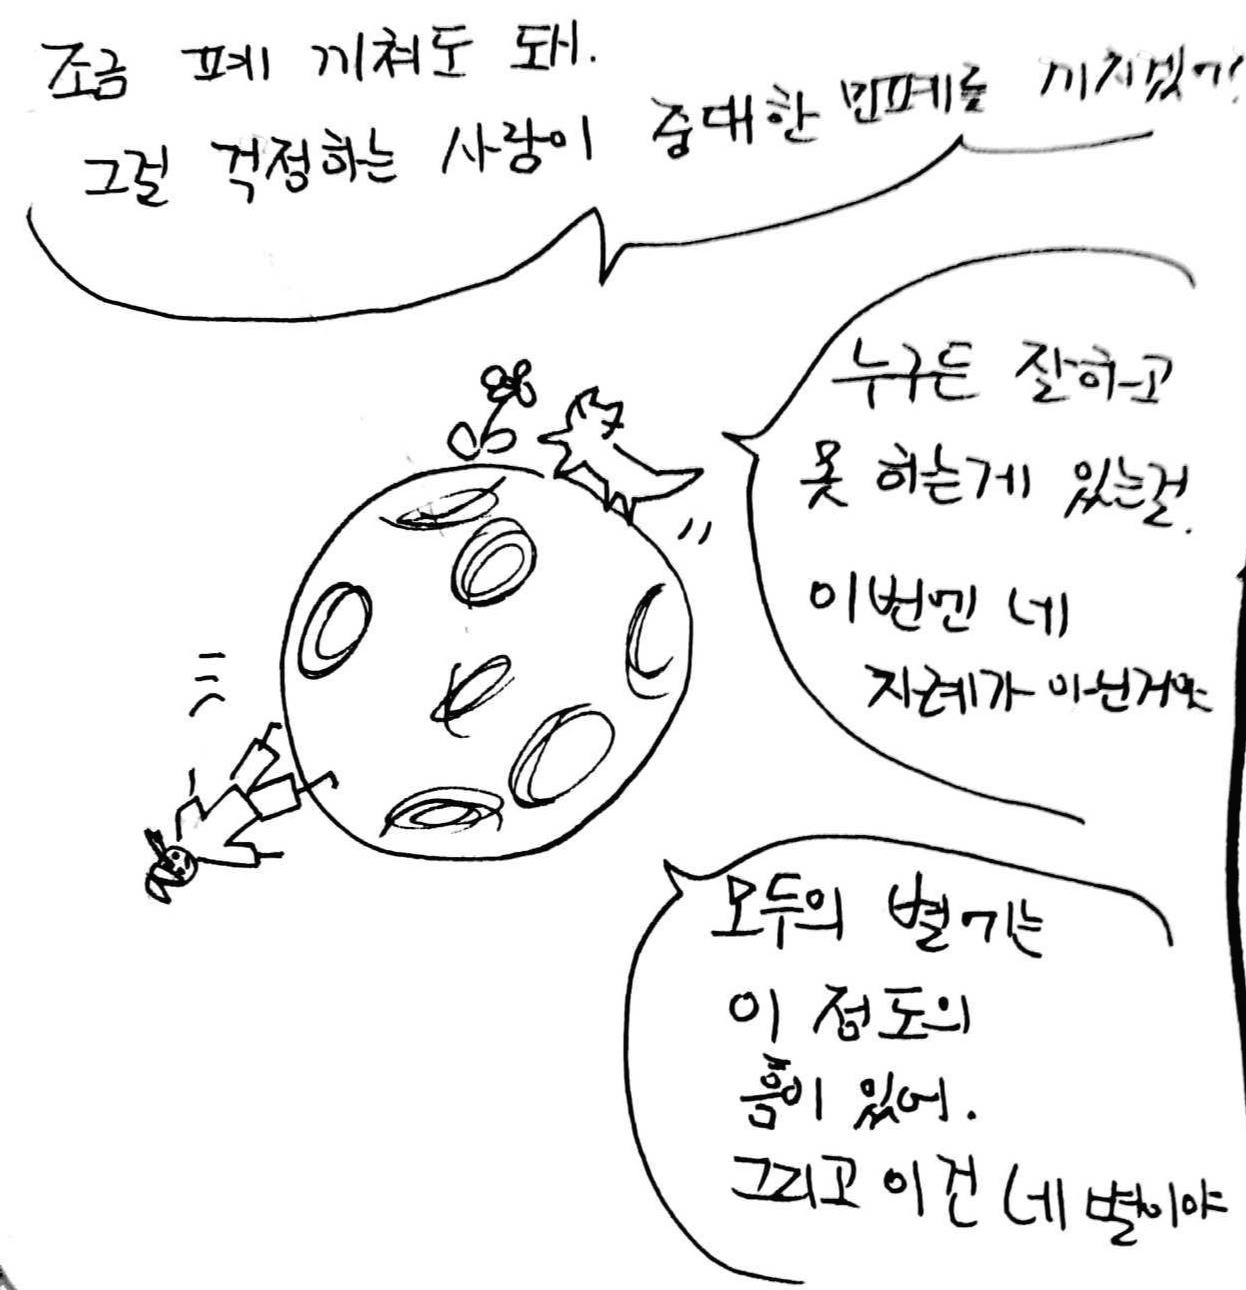 조금 폐 끼쳐도 돼.
그걸 걱정하는 사람이 중대한 민폐를 끼치겠어?
누구든 잘하고
못 하는게 있는걸.
이번엔 네
차례가 아닌거야
모두의 별에는
이 정도의
흠이 있어.
그리고 이건 네 별이야